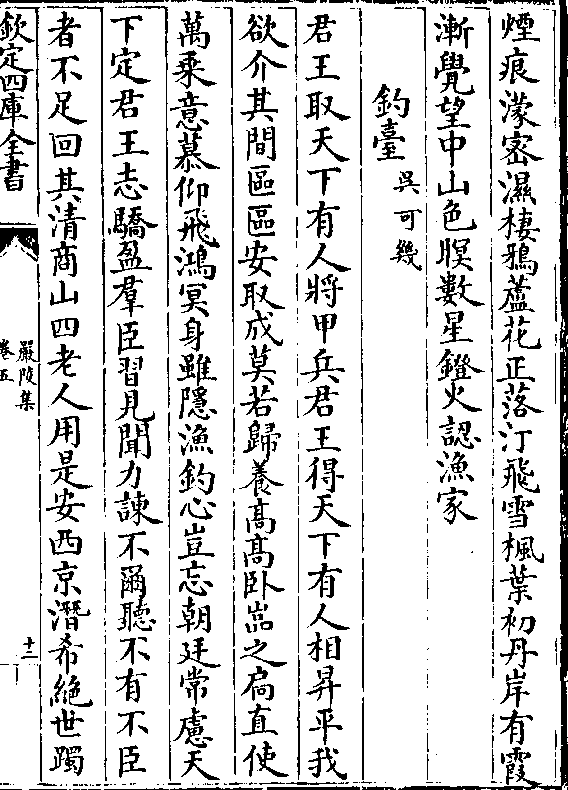 煙痕濛宻濕棲鴉蘆花正落汀飛雪楓葉初丹岸有霞
漸覺望中山色暝數星鐙火認漁家
釣臺　吳可幾
君王取天下有人將甲兵君王得天下有人相昇平我
欲介其間區區安取成莫若歸養髙髙卧嵓之扄直使
萬乗意慕仰飛鴻冥身雖隱漁釣心豈忘朝廷常慮天
下定君王志驕盈羣臣習見聞力諫不爾聽不有不臣
者不足回其清商山四老人用是安西京潛希絶世躅
欽定四庫全書
嚴陵集
卷五
十二